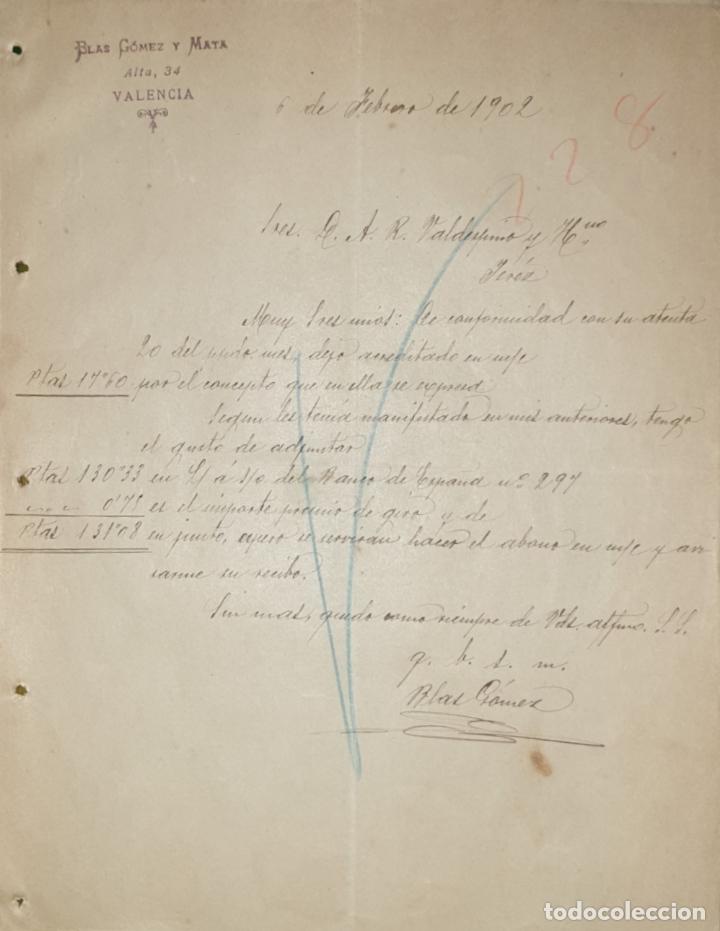 BLAS GÓMEZ Y MATA
Alta, 34
VALENCIA
6 de Febrero de 1902
228
Sres. D. A. R. Valdespino y Hno
Jeréz
Muy Sres mios: De conformidad con su atenta
20 del pndo. mes, dejo acreditado en m/c
Ptas 17'60 por el concepto que en ella se expresa
Segun les tenia manifestado en mis anteriores, tengo
el gusto de adjuntar
Ptas 130'33 en L/ á s/o del Banco de España nº 297
0'75 es el importe premio de giro y de
Ptas 131'08 en junto, espero se serviran hacer el abono en m/c y avi
sarme su recibo.
Sin mas, quedo como siempre de Vds. atfmo. S. S.
q. b. s. m.
Blas Gómez
todocoleccion.net